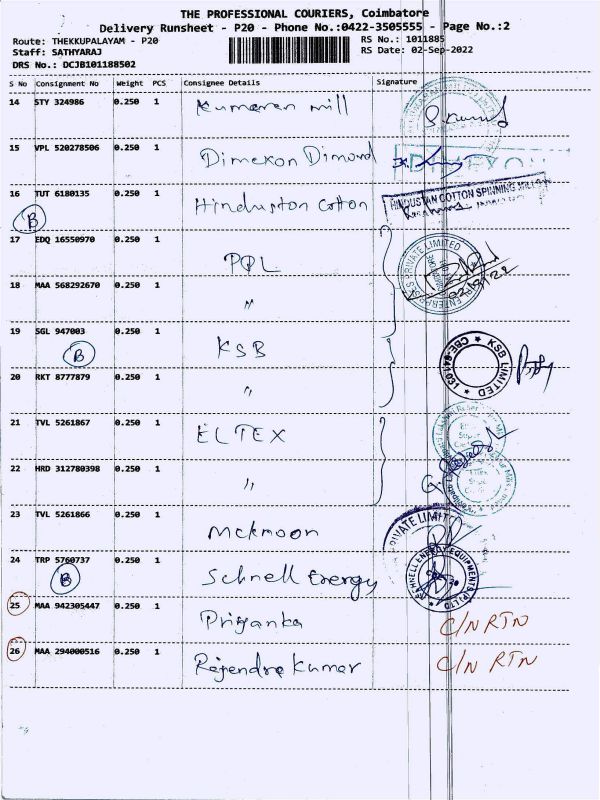 THE PROFESSIONAL COURIERS, Coimbatore
Delivery Runsheet - P20 - Phone No.:0422-3505555 - Page No.:2
Route: THEKKUPALAYAM - P20
RS No.: 1011885
Staff: SATHYARAJ
RS Date: 02-Sep-2022
DRS No.: DCJB101188502
S No Consignment No Weight PCS Consignee Details Signature
14 STY 324986 0.250 1 Kumaran mill
15 VPL 520278506 0.250 1 Dimexon Dimond DIMEXON
16 TUT 6180135 0.250 1 Hinduston Cotton HINDUSTAN COTTON SPINNING MILLS
B
17 EDQ 16550970 0.250 1 PRIVATE LIMITED
18 MAA 568292670 0.250 1 〃
19 SGL 947003 0.250 1 KSB KSB LIMITED CBE-641031
B
20 RKT 8777879 0.250 1 〃
21 TVL 5261867 0.250 1 ELTEX
22 HRD 312780398 0.250 1 〃
23 TVL 5261866 0.250 1 Mcknoon PRIVATE LIMITED
24 TRP 5760737 0.250 1 Schnell Energy SCHNELL ENERGY EQUIPMENTS (P) LTD
B
25 MAA 942305447 0.250 1 Priyanka C/N RTN
26 MAA 294000516 0.250 1 Rajendra Kumar C/N RTN